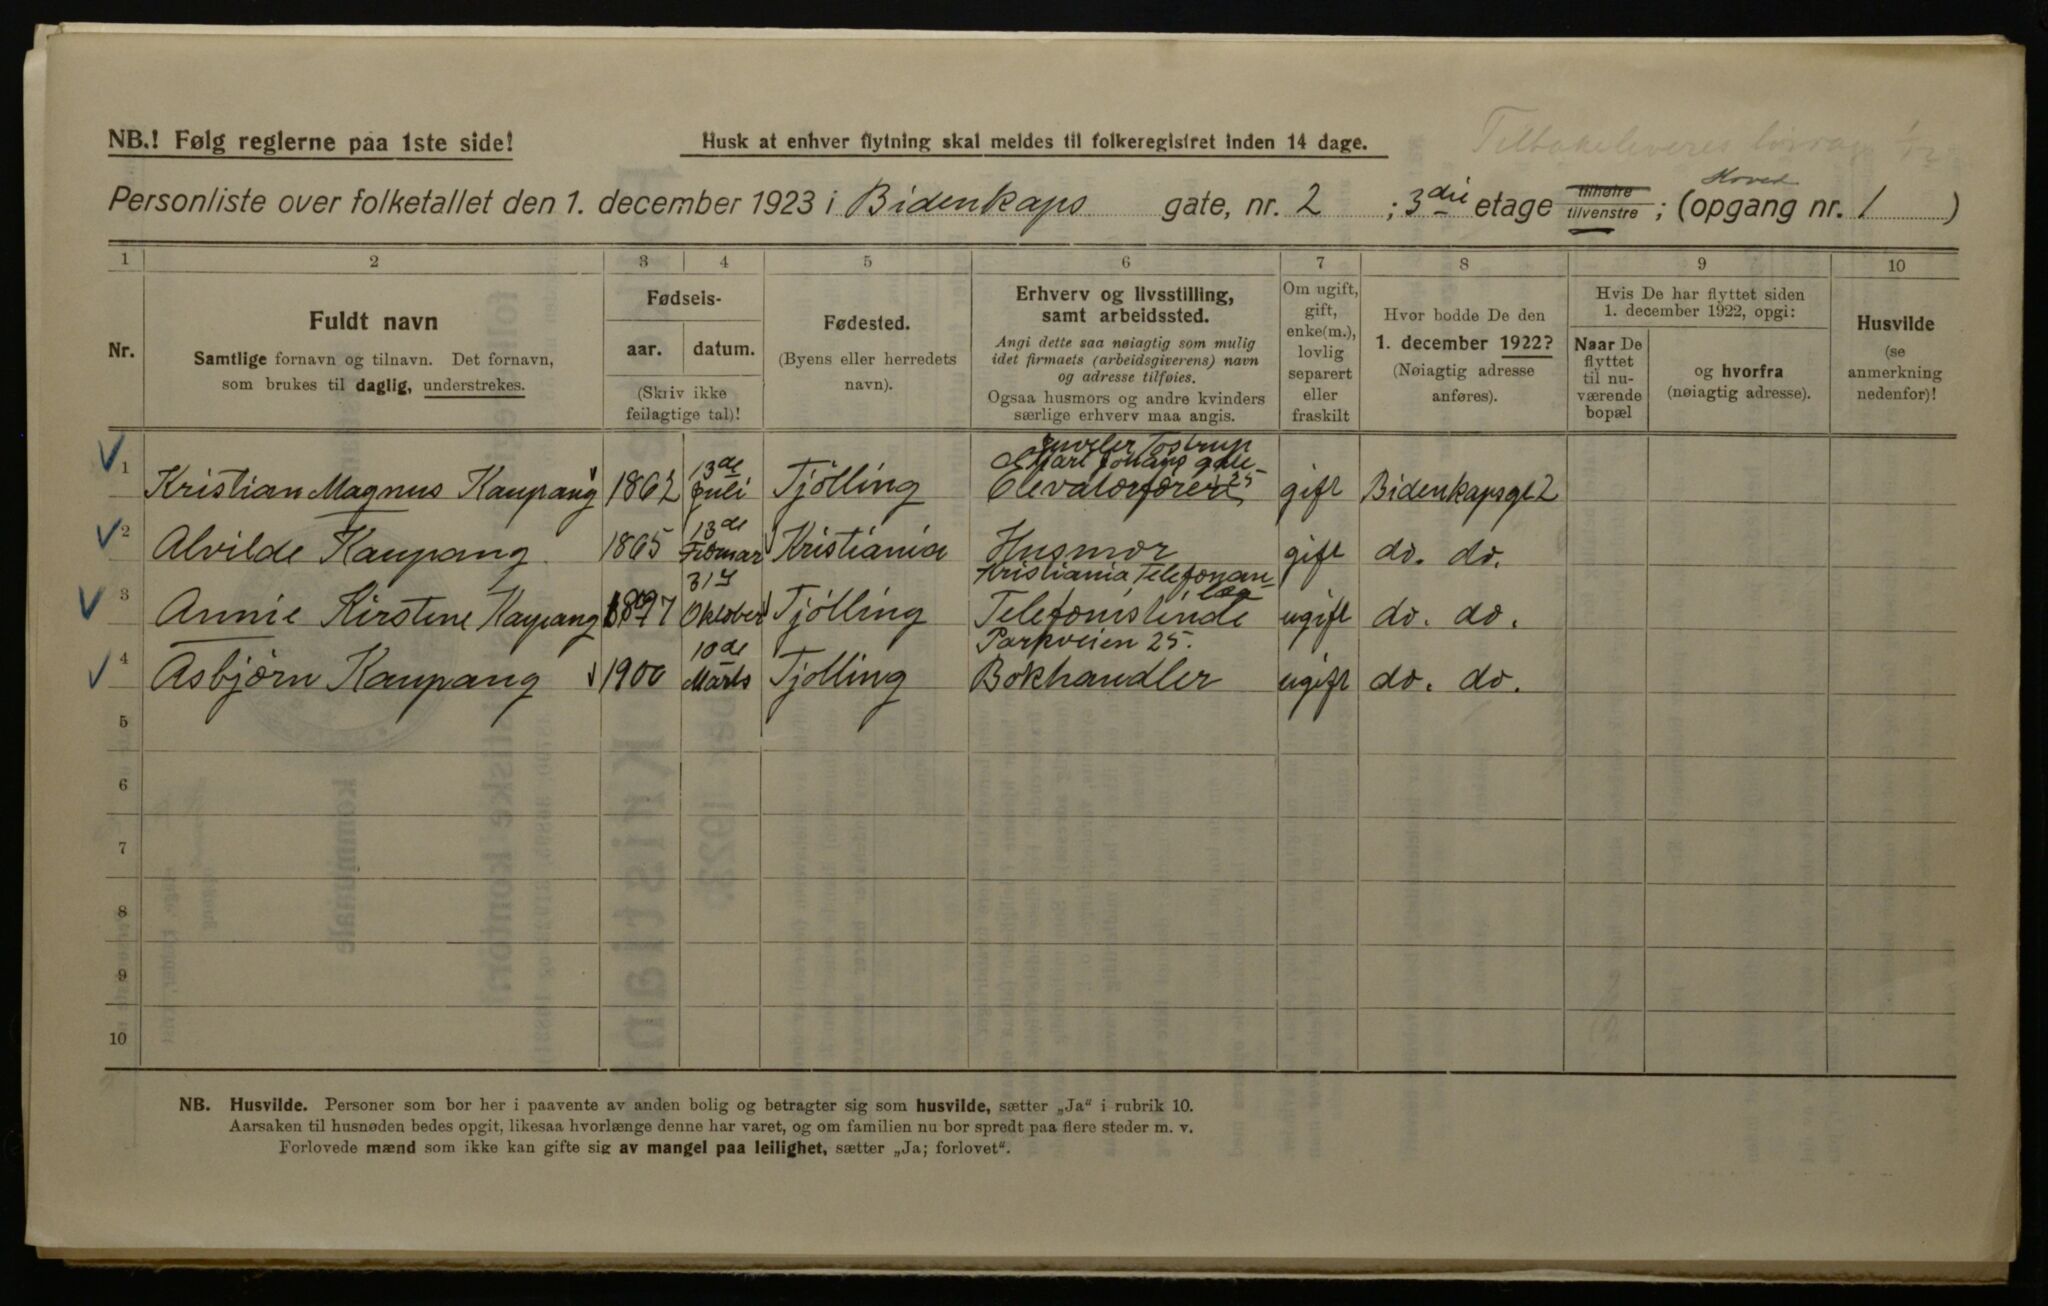 NB.! Følg reglerne paa 1ste side!
Husk at enhver flytning skal meldes til folkeregistret inden 14 dage.
Tilbakeleveres
Hoved
Personliste over folketallet den 1. december 1923 i Bidenkaps gate, nr. 2 ; 3die etage tilhøire tilvenstre ; (opgang nr. 1 )
1 2 3 4 5 6 7 8 9 10
Nr.
Fuldt navn
Samtlige fornavn og tilnavn. Det fornavn,
som brukes til daglig, understrekes.
Fødsels-
aar. datum.
(Skriv ikke
feilagtige tal)!
Fødested.
(Byens eller herredets
navn).
Erhverv og livsstilling,
samt arbeidssted.
Angi dette saa nøiagtig som mulig
idet firmaets (arbeidsgiverens) navn
og adresse tilføies.
Ogsaa husmors og andre kvinders
særlige erhverv maa angis.
Om ugift,
gift,
enke(m.),
lovlig
separert
eller
fraskilt
Hvor bodde De den
1. december 1922?
(Nøiagtig adresse
anføres).
Hvis De har flyttet siden
1. december 1922, opgi:
Naar De
flyttet
til nu-
værende
bopæl
og hvorfra
(nøiagtig adresse).
Husvilde
(se
anmerkning
nedenfor)!
Juveler Tostrup
Karl Johans gate 25
1 Kristian Magnus Kaupang 1862 13de Juli Tjölling Elevatorfører gift Bidenkapsgt 2
2 Alvilde Kaupang 1865 13de Kristiania Husmor gift do. do.
Kristiania Telefonan-
læg
3 Annie Kirstine Kaupang 1897 31/ Oktober Tjölling Telefonistinde ugift do. do.
Parkveien 25.
4 Asbjörn Kaupang 1900 10de Marts Tjölling Bokhandler ugift do. do.
5
6
7
8
9
10
NB. Husvilde. Personer som bor her i paavente av anden bolig og betragter sig som husvilde, sætter „Ja“ i rubrik 10.
Aarsaken til husnøden bedes opgit, likesaa hvorlænge denne har varet, og om familien nu bor spredt paa flere steder m. v.
Forlovede mænd som ikke kan gifte sig av mangel paa leilighet, sætter „Ja; forlovet“.